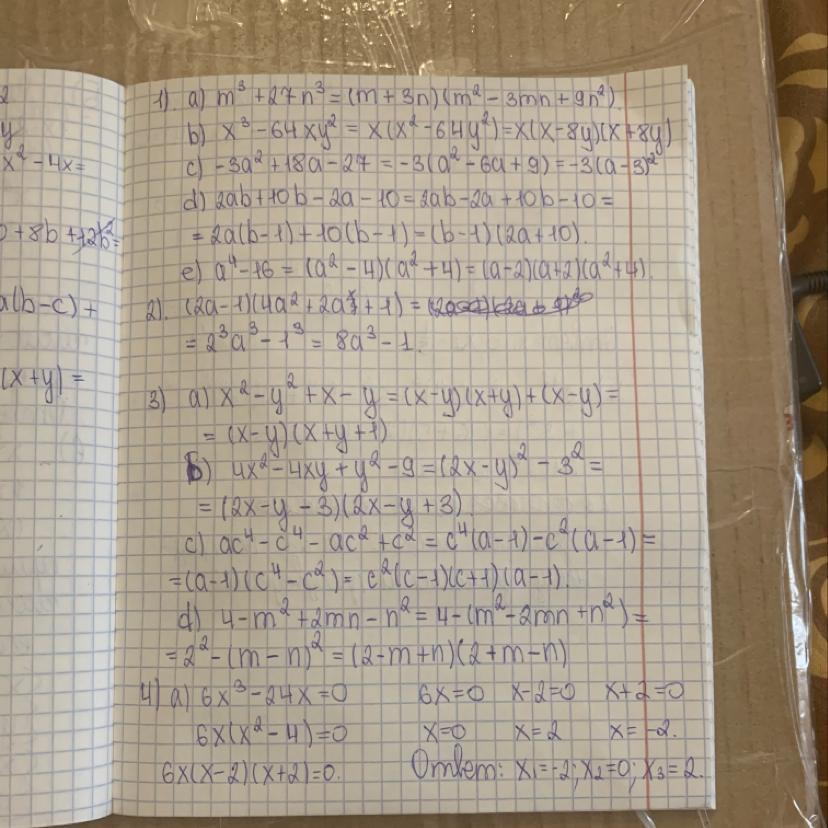 2
y
x² - 4x =
+ 8b + 12b² =
a(b-c) +
(x+y) =
1) a) m³ + 27n³ = (m + 3n)(m² - 3mn + 9n²)
b) x³ - 64xy² = x(x² - 64y²) = x(x - 8y)(x + 8y)
c) -3a² + 18a - 27 = -3(a² - 6a + 9) = -3(a - 3)²
d) 2ab + 10b - 2a - 10 = 2ab - 2a + 10b - 10 =
= 2a(b - 1) + 10(b - 1) = (b - 1)(2a + 10).
e) a⁴ - 16 = (a² - 4)(a² + 4) = (a - 2)(a + 2)(a² + 4).
2). (2a - 1)(4a² + 2a + 1) =
= 2³a³ - 1³ = 8a³ - 1.
3) a) x² - y² + x - y = (x - y)(x + y) + (x - y) =
= (x - y)(x + y + 1)
b) 4x² - 4xy + y² - 9 = (2x - y)² - 3² =
= (2x - y - 3)(2x - y + 3).
c) ac⁴ - c⁴ - ac² + c² = c⁴(a - 1) - c²(a - 1) =
= (a - 1)(c⁴ - c²) = c²(c - 1)(c + 1)(a - 1).
d) 4 - m² + 2mn - n² = 4 - (m² - 2mn + n²) =
= 2² - (m - n)² = (2 - m + n)(2 + m - n)
4) a) 6x³ - 24x = 0 6x = 0 x - 2 = 0 x + 2 = 0
6x(x² - 4) = 0 x = 0 x = 2 x = -2.
6x(x - 2)(x + 2) = 0. Ответ: x₁ = -2; x₂ = 0; x₃ = 2.